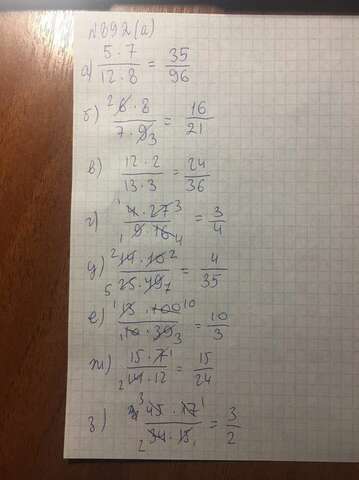 №892(а)
а) 5·7/12·8 = 35/96
б) ²6·8/7·9₃ = 16/21
в) 12·2/13·3 = 24/36
г) ¹4·27³/₁9·16₄ = 3/4
д) ²14·10²/₅25·49₇ = 4/35
е) ¹13·100¹⁰/₁10·39₃ = 10/3
ж) 15·7¹/₂14·12 = 15/24
з) ³45·17¹/₂34·15₁ = 3/2